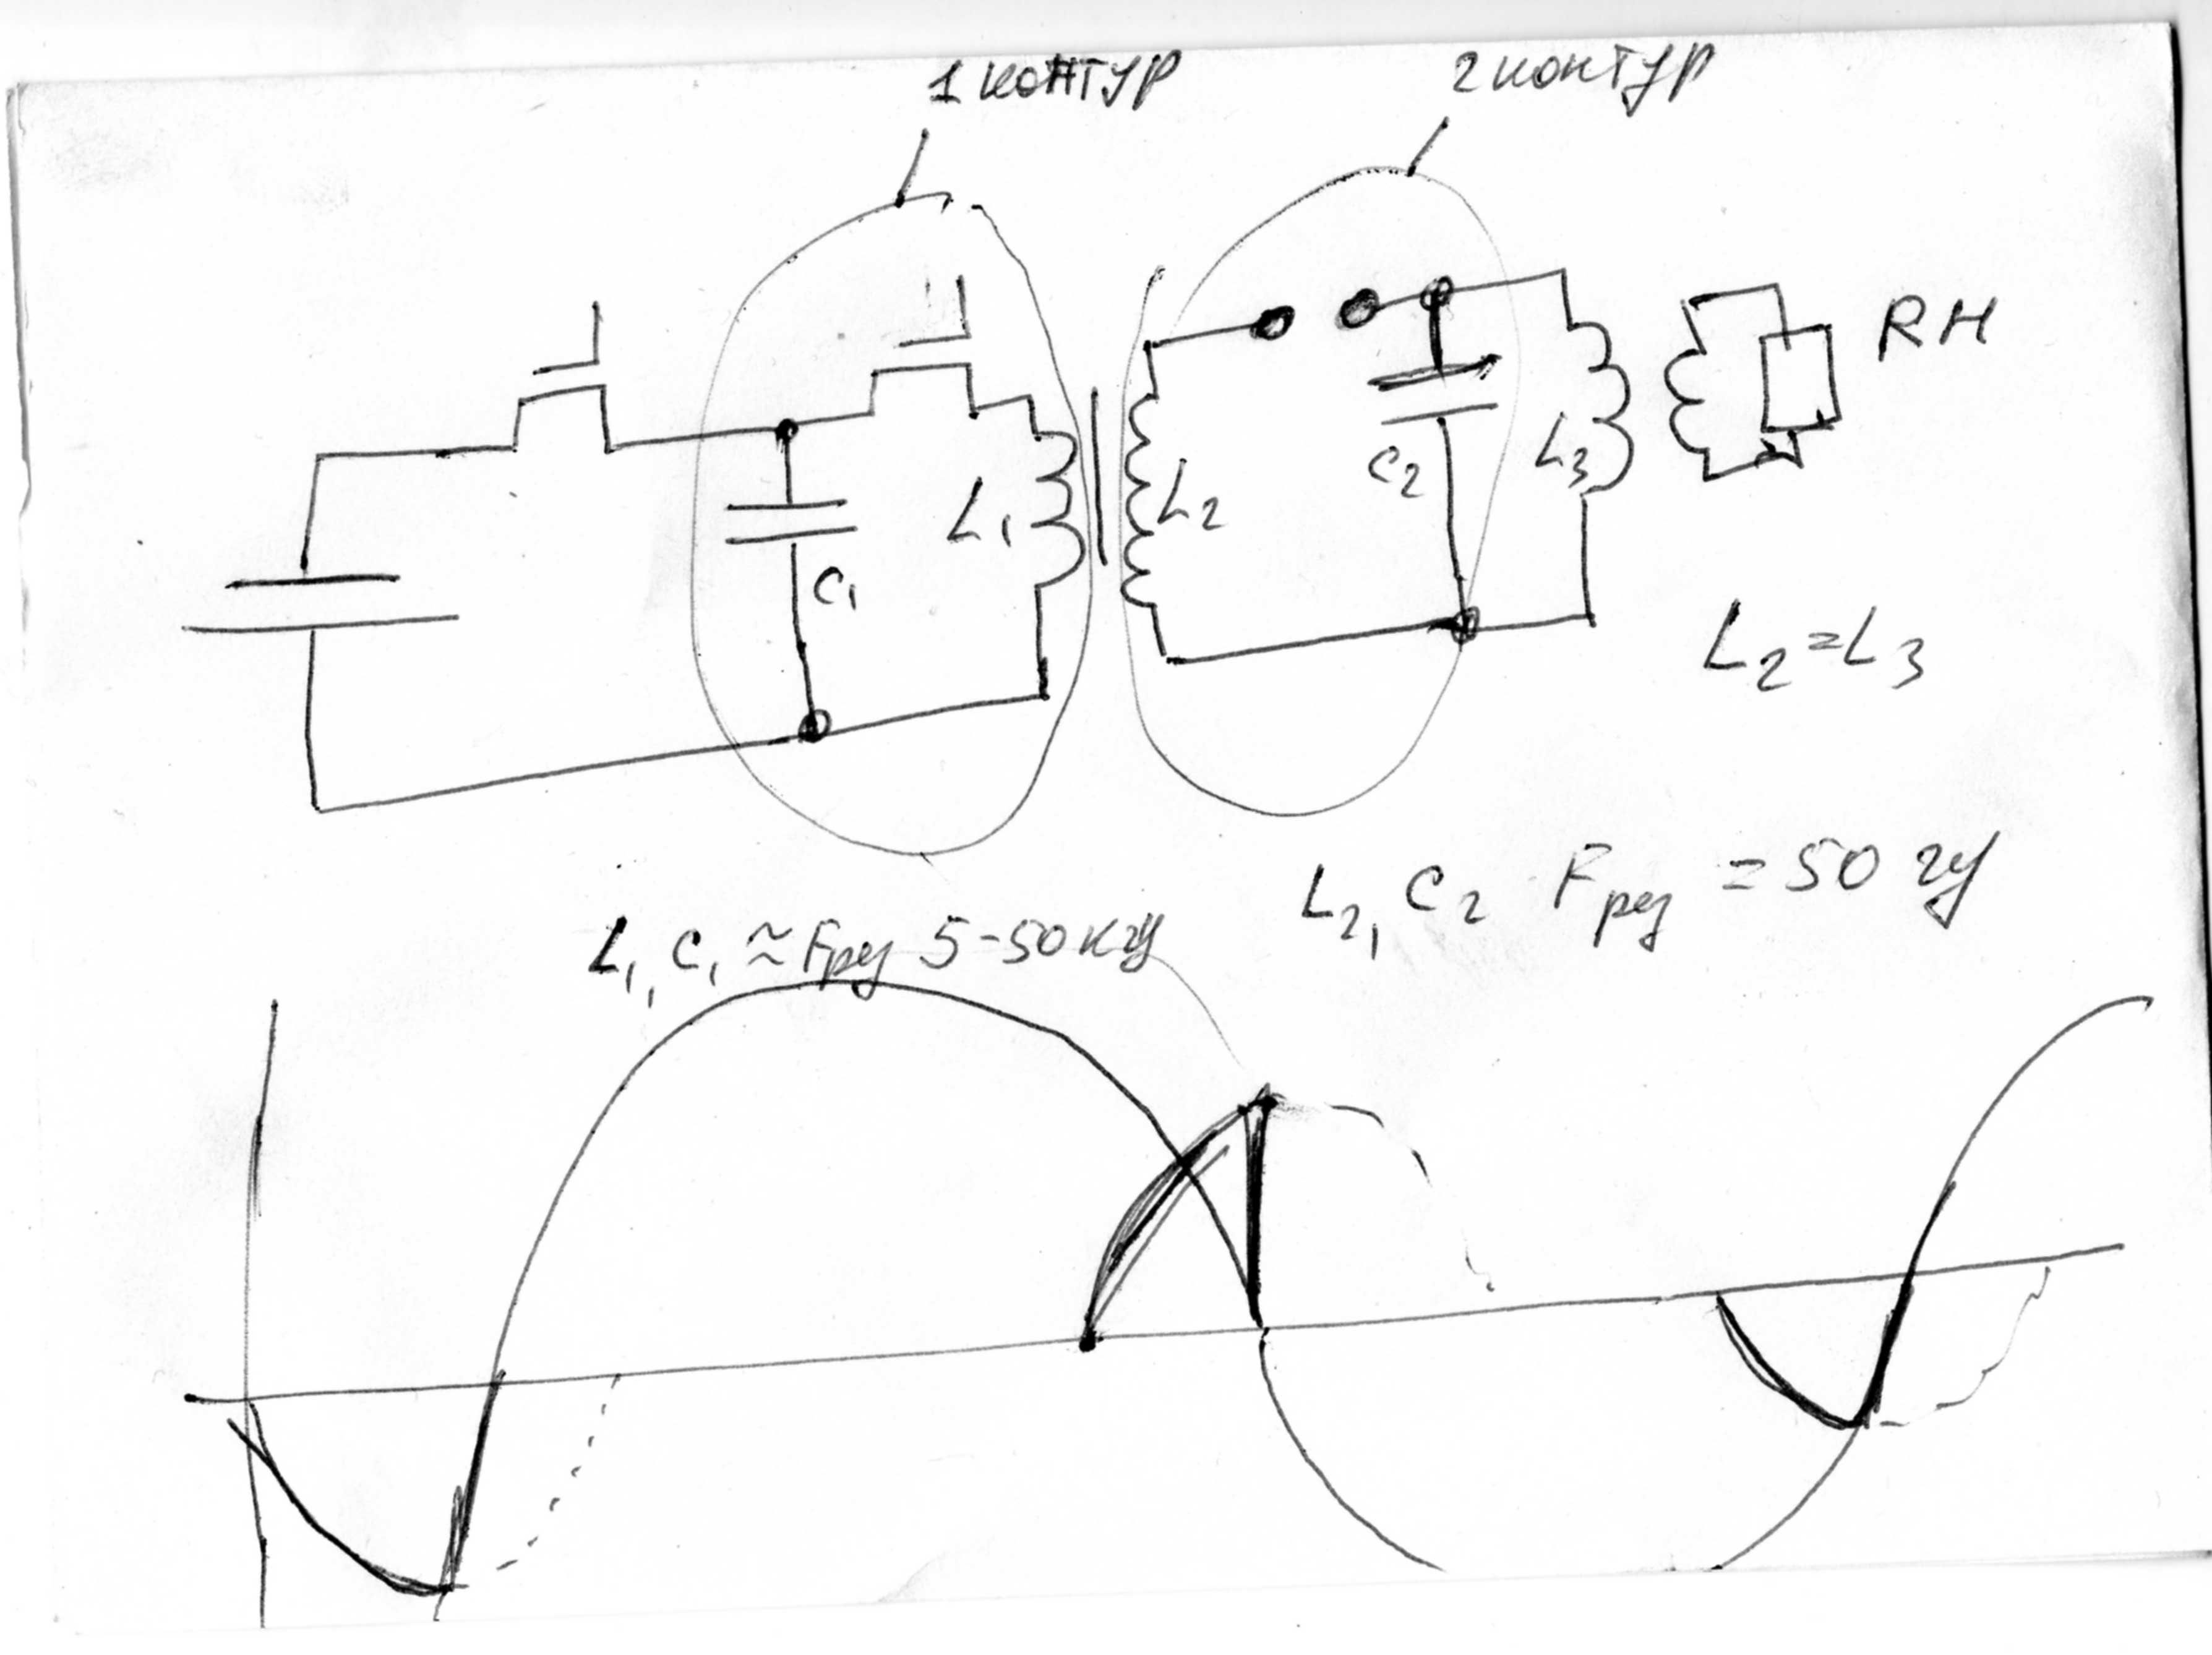 1 контур
2 контур
RН
L1
L2
C2
L3
C1
L2=L3
L2, C2 Fрез = 50 гц
L1, C1 ≈ Fрез 5-50кгц